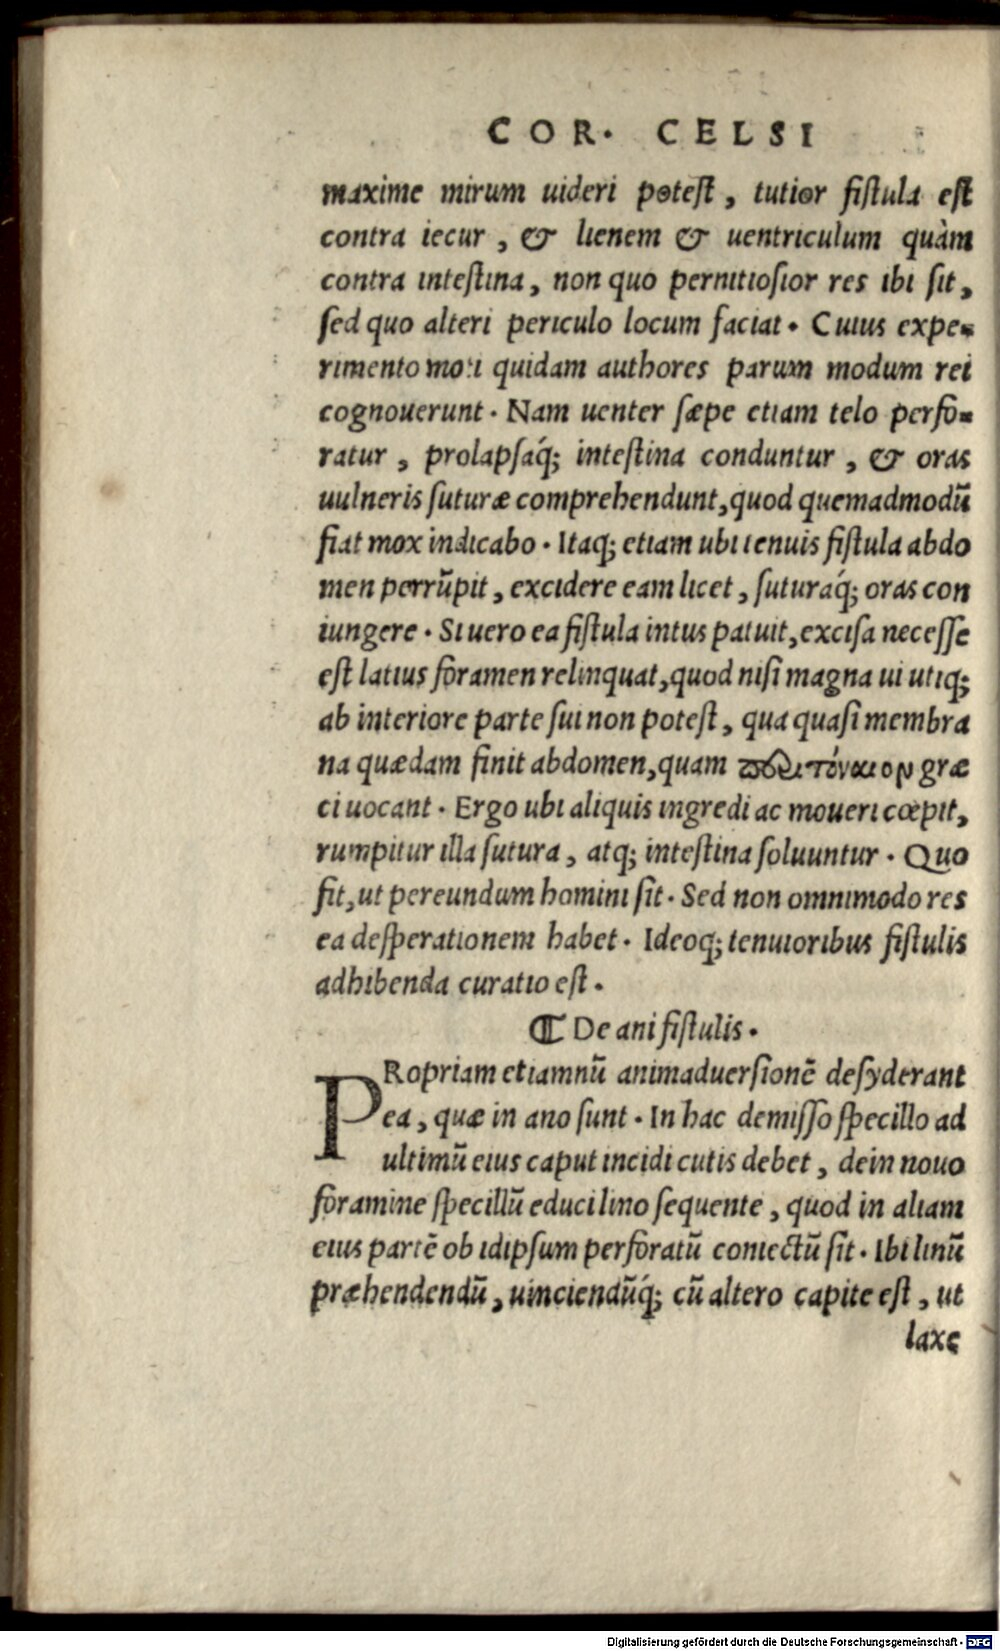 COR. CELSI
maxime mirum uideri potest, tutior fistula est
contra iecur, & lienem & uentriculum quàm
contra intestina, non quo pernitiosior res ibi sit,
sed quo alteri periculo locum faciat. Cuius expe-
rimento moti quidam authores parum modum rei
cognouerunt. Nam uenter sæpe etiam telo perfo-
ratur, prolapsaq́; intestina conduntur, & oras
uulneris suturæ comprehendunt, quod quemadmodū
fiat mox indicabo. Itaq; etiam ubi tenuis fistula abdo
men perrūpit, excidere eam licet, suturaq́; oras con
iungere. Si uero ea fistula intus patuit, excisa necesse
est latius foramen relinquat, quod nisi magna ui utiq;
ab interiore parte sui non potest, qua quasi membra
na quædam finit abdomen, quam περιτόναιον græ
ci uocant. Ergo ubi aliquis ingredi ac moueri cœpit,
rumpitur illa sutura, atq; intestina soluuntur. Quo
fit, ut pereundum homini sit. Sed non omnimodo res
ea desperationem habet. Ideoq; tenuioribus fistulis
adhibenda curatio est.
¶ De ani fistulis.
PRopriam etiamnū animaduersionē desyderant
ea, quæ in ano sunt. In hac demisso specillo ad
ultimū eius caput incidi cutis debet, dein nouo
foramine specillū educi lino sequente, quod in aliam
eius partē ob idipsum perforatū coniectū sit. Ibi linū
præhendendū, uinciendūq́; cū altero capite est, ut
laxe
Digitalisierung gefördert durch die Deutsche Forschungsgemeinschaft - DFG